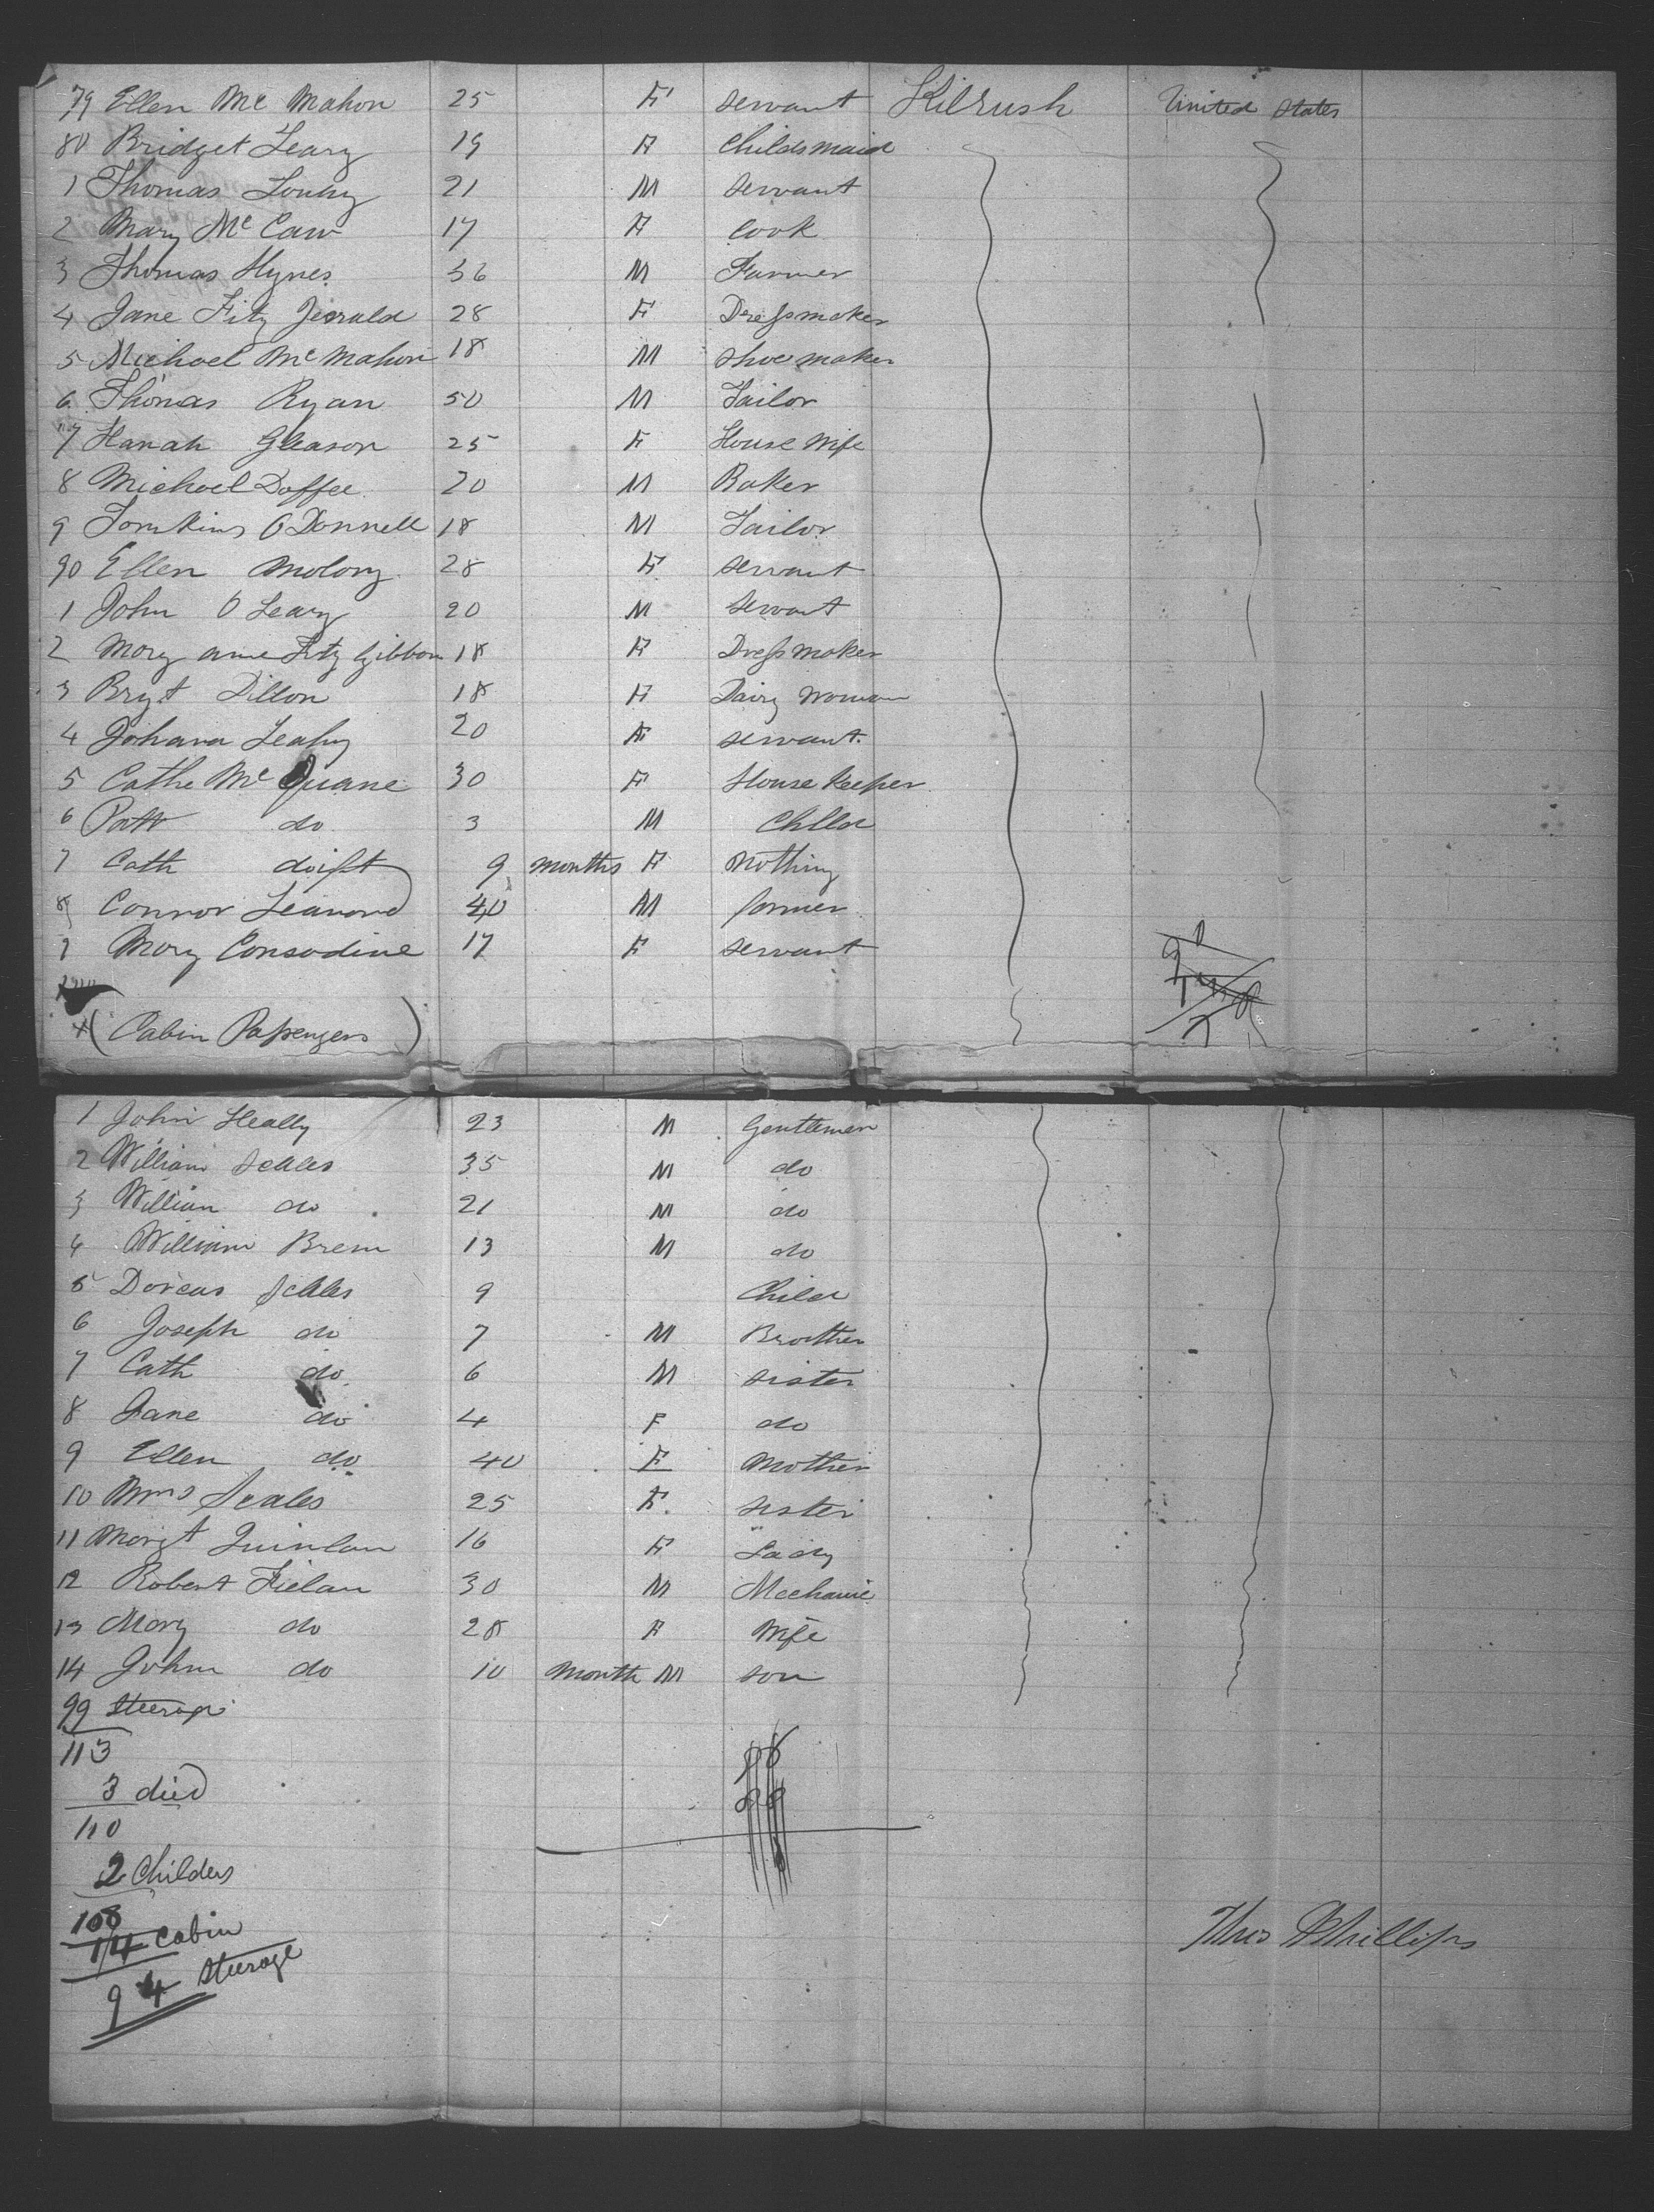 79 Ellen Mc Mahon 25 F servant Kilrush United States
80 Bridget Leary 19 F Childsmaid
1 Thomas 21 M servant
2 Mary Mc Caw 17 F Cook
3 Thomas Hynes 36 M Farmer
4 Jane Fitz Jerrald 28 F Dressmaker
5 Michael Mc Mahon 18 M shoe maker
6 Thomas Ryan 50 M Tailor
7 Hanah Gleason 25 F House Wife
8 Michael Daffee 20 M Baker
9 Tomkins O Donnell 18 M Tailor
90 Ellen Molony 28 F servant
1 John O Leary 20 M servant
2 Mary ane Fitz Gibbon 18 F Dress Maker
3 Brgt Dillon 18 F Dairy Woman
4 Johana Leahy 20 F servant
5 Cathe Mc Quane 30 F House Keeper
6 Patt do 3 M Child
7 Cath do 9 months F Nothing
8 Connor Leanord 40 M farmer
9 Mary Consodine 17 F servant
(Cabin Passengers)
1 John Heally 23 M Gentlemen
2 William Scales 35 M do
3 William do 21 M do
4 William Brem 13 M do
5 Dorcas Scales 9 Child
6 Joseph do 7 M Brother
7 Cath do 6 M sister
8 Jane do 4 F do
9 Ellen do 40 F Mother
10 Scales 25 F sister
11 Margt Quinlan 16 F Lady
12 Robert Fielan 30 M Mechanic
13 Mary do 28 F Wife
14 John do 10 month M son
99 Steerage
113
3 died
110
2 Childers
108
14 Cabin
94 Steerage
Thos Phillips